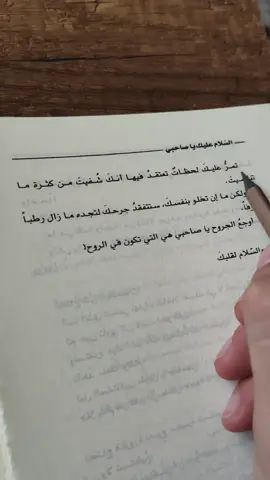 السّلام عليكَ يا صاحبي
تمرُّ عليكَ لحظاتٌ تعتقدُ فيها أنكَ شُفيتَ من كثرة ما
ولكن ما إن تخلو بنفسكَ، ستتفقدُ جرحكَ لتجدَه ما زال رطباً
أوجعُ الجروح يا صاحبي هي التي تكون في الروح!
السّلام لقلبك